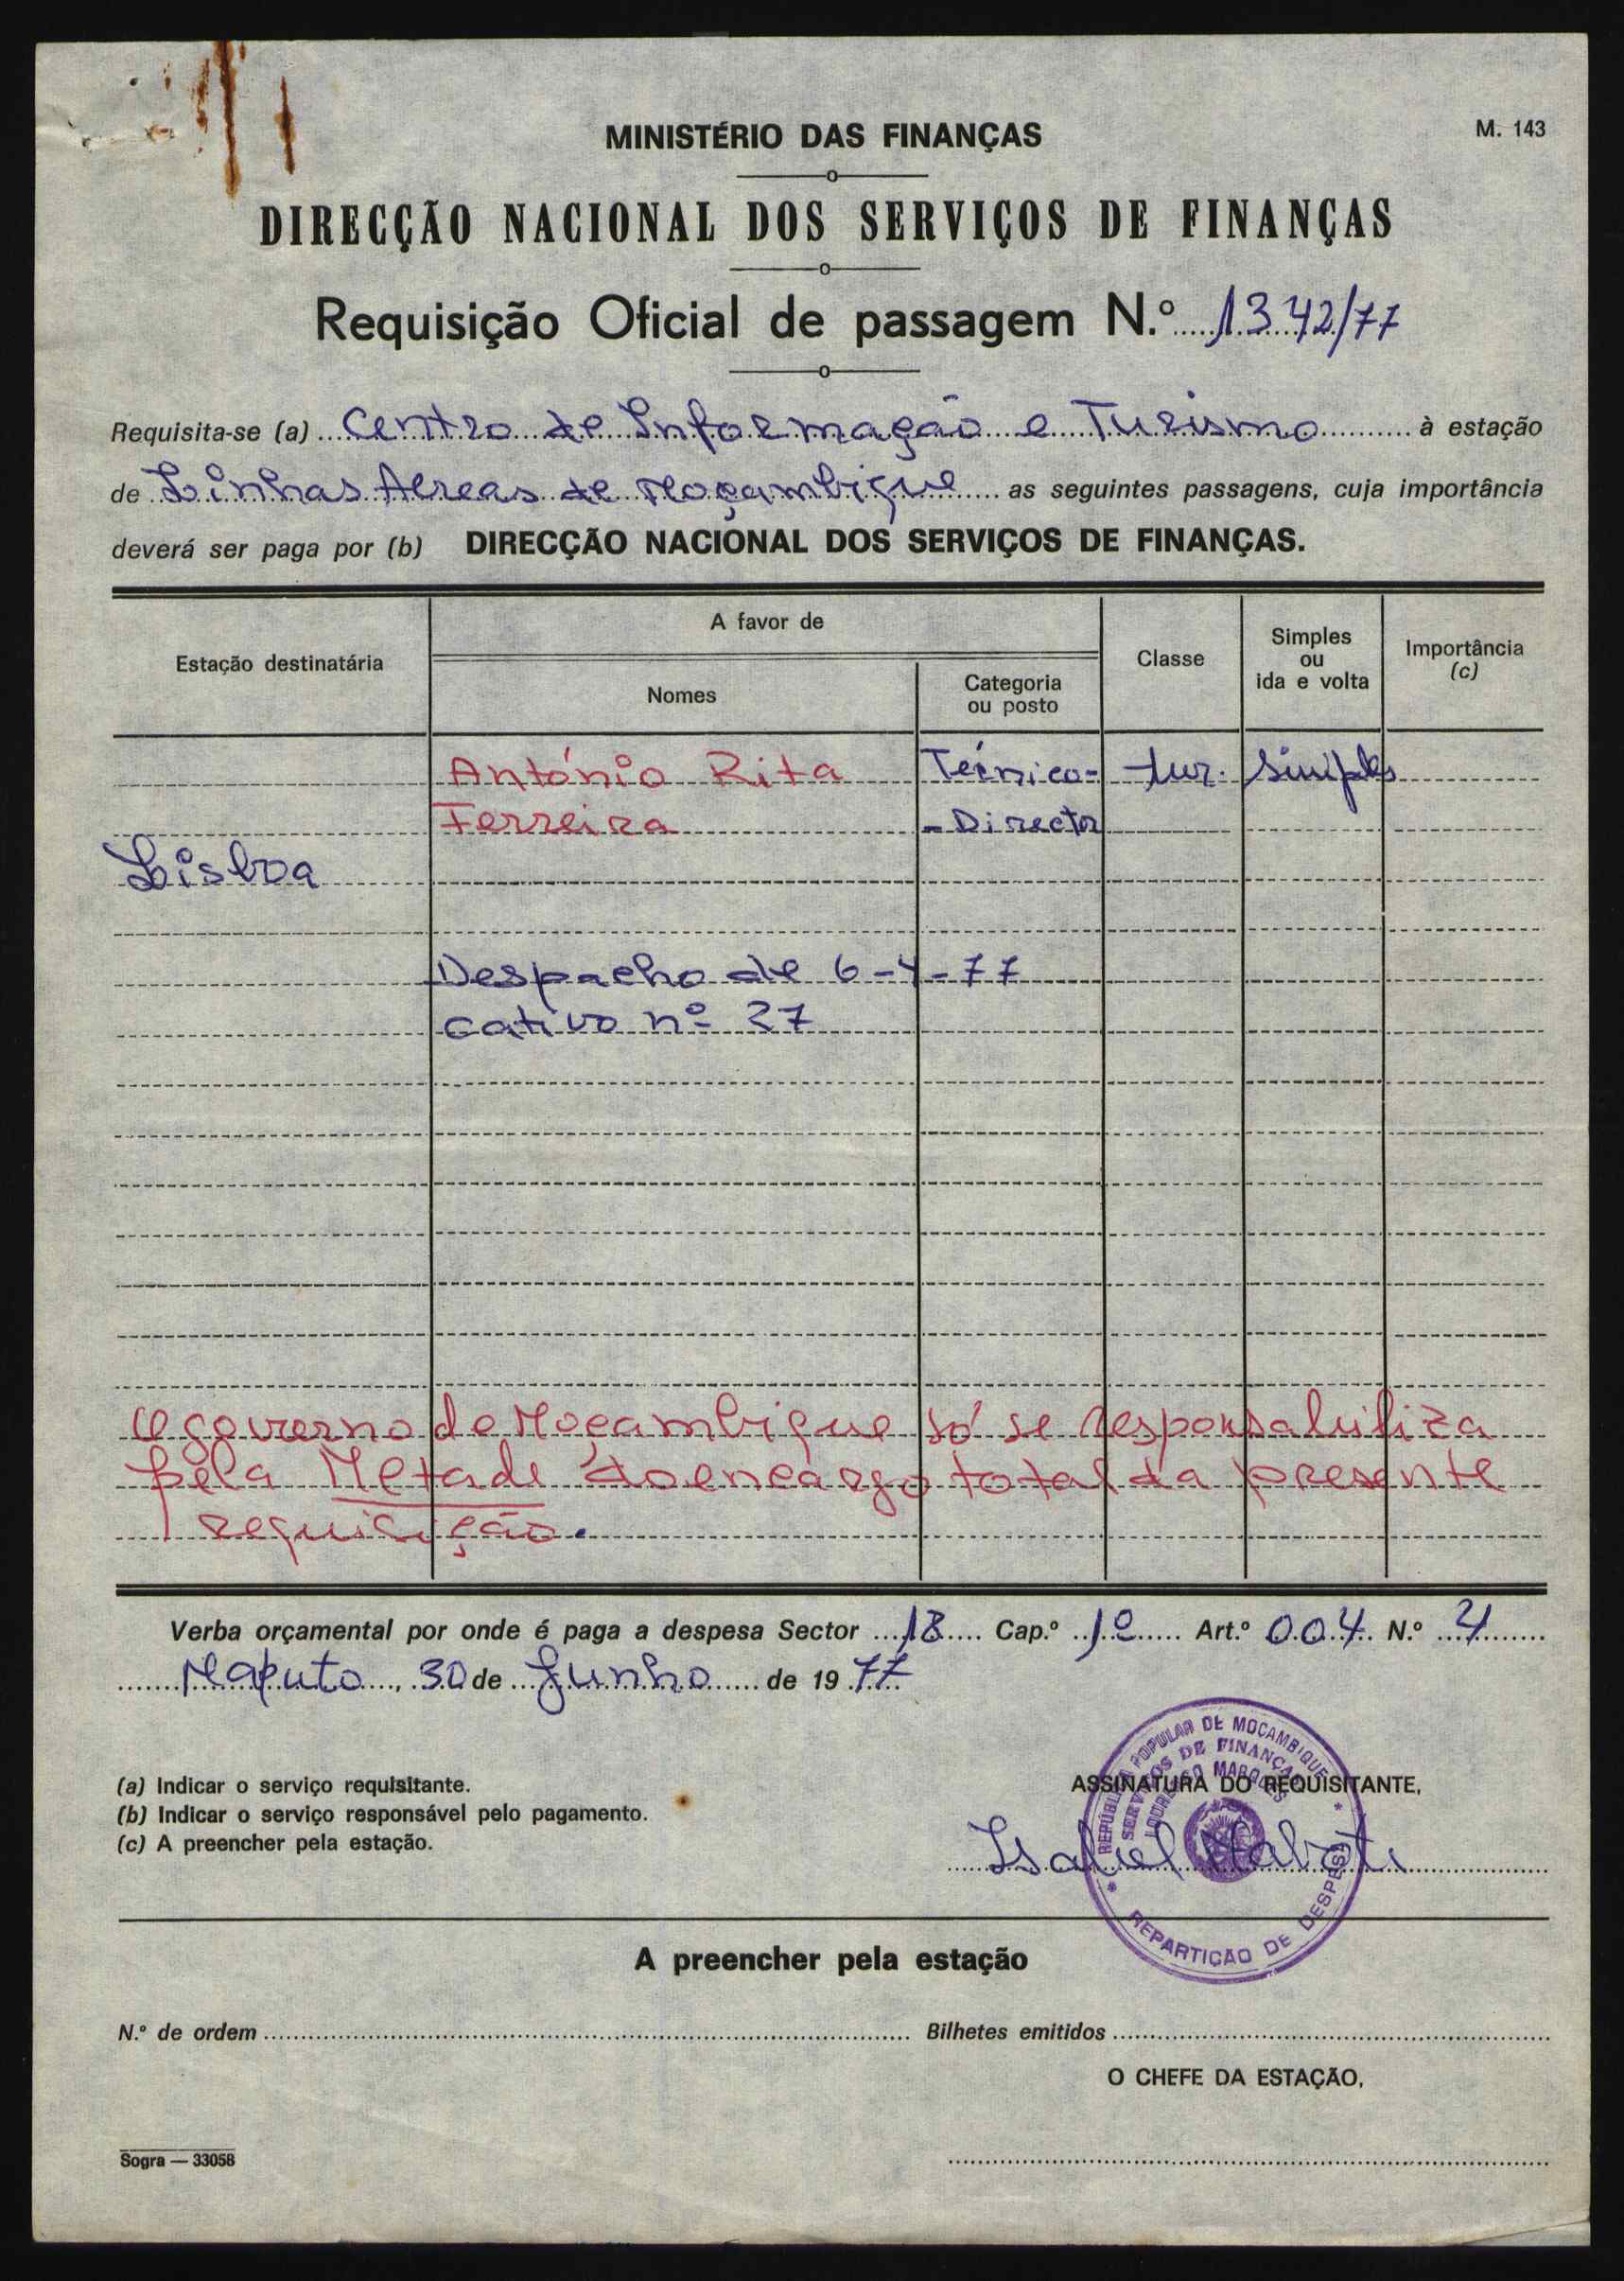 MINISTÉRIO DAS FINANÇAS
M. 143
DIRECÇÃO NACIONAL DOS SERVIÇOS DE FINANÇAS
Requisição Oficial de passagem N.º 1342/77
Requisita-se (a) Centro de Informação e Turismo à estação
de Linhas Aereas de Moçambique as seguintes passagens, cuja importância
deverá ser paga por (b) DIRECÇÃO NACIONAL DOS SERVIÇOS DE FINANÇAS.
Estação destinatária
A favor de
Nomes
Categoria
ou posto
Classe
Simples
ou
ida e volta
Importância
(c)
António Rita Técnico- tur. simples
Ferreira -Director
Lisboa
Despacho de 6-4-77
cativo nº 27
O governo de Moçambique só se responsabiliza
pela Metade do encargo total da presente
requisição.
Verba orçamental por onde é paga a despesa Sector 18 Cap.º 1º Art.º 004 N.º 4
Maputo, 30 de Junho de 1977
(a) Indicar o serviço requisitante.
(b) Indicar o serviço responsável pelo pagamento.
(c) A preencher pela estação.
ASSINATURA DO REQUISITANTE,
Isabel
REPÚBLICA POPULAR DE MOÇAMBIQUE
SERVIÇOS DE FINANÇAS
LOURENÇO MARQUES
REPARTIÇÃO DE DESPESA
A preencher pela estação
N.º de ordem Bilhetes emitidos
O CHEFE DA ESTAÇÃO,
Sogra — 33058